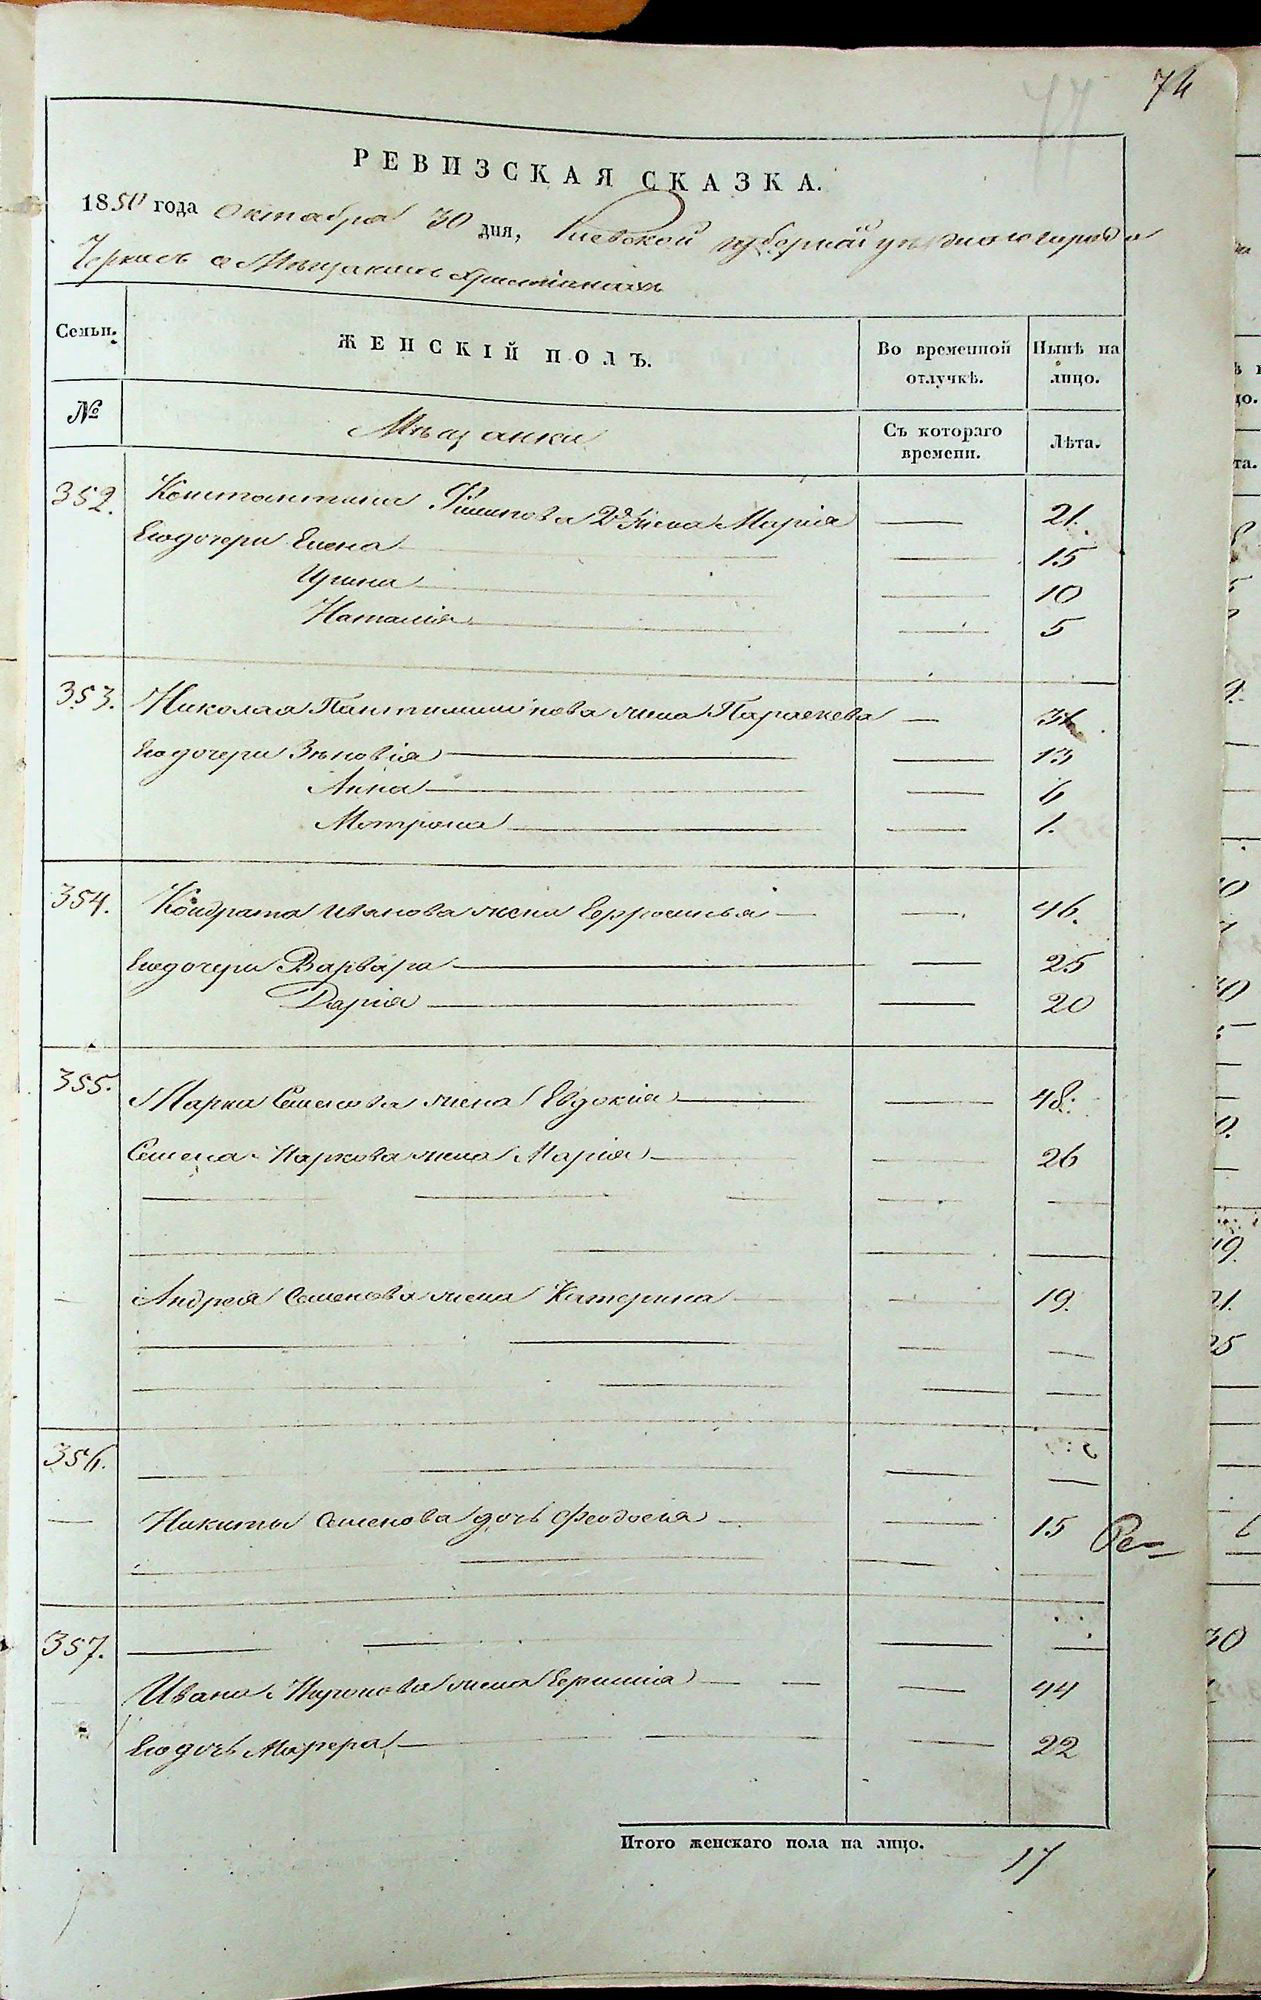 74
77
РЕВИЗСКАЯ СКАЗКА.
1850 года Октабра 30 дня, Киевской губерніи уѣзднаго города
Черкасъ о Мѣщанахъ Христіянахъ
Семьи.
ЖЕНСКІЙ ПОЛЪ.
Во временной отлучкѣ.
Нынѣ на лицо.
№
Мѣщанки
Съ котораго времени.
Лѣта.
352. Константина Филипова 2я жена Марія 21.
Его дочери Елена 15
Ирина 10
Наталія 5
353. Николая Пантилимонова жена Параскева
Его дочери Зѣновія 13
Анна 6
Мотрона 1.
354. Кондрата Иванова жена Евфросинья 46.
Его дочери Варвара 25
Дарія 20
355. Марка Семенова жена Евдокія 48.
Семена Маркова жена Марія 26
Андрея Семенова жена Катерина 19.
356.
Никиты Семенова дочь Феодосія 15
Ре-
357.
Ивана жена 44
Его дочь 22
Итого женскаго пола на лицо. 17